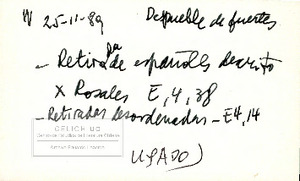 IV 25-11-89 Despueble de fuertes
- Retirada de españoles descrito
x Rosales E, 4, 38
- Retiradas desordenadas - E4, 14
CELICH UC
Centro de Estudios de Literatura Chilena
USADO)